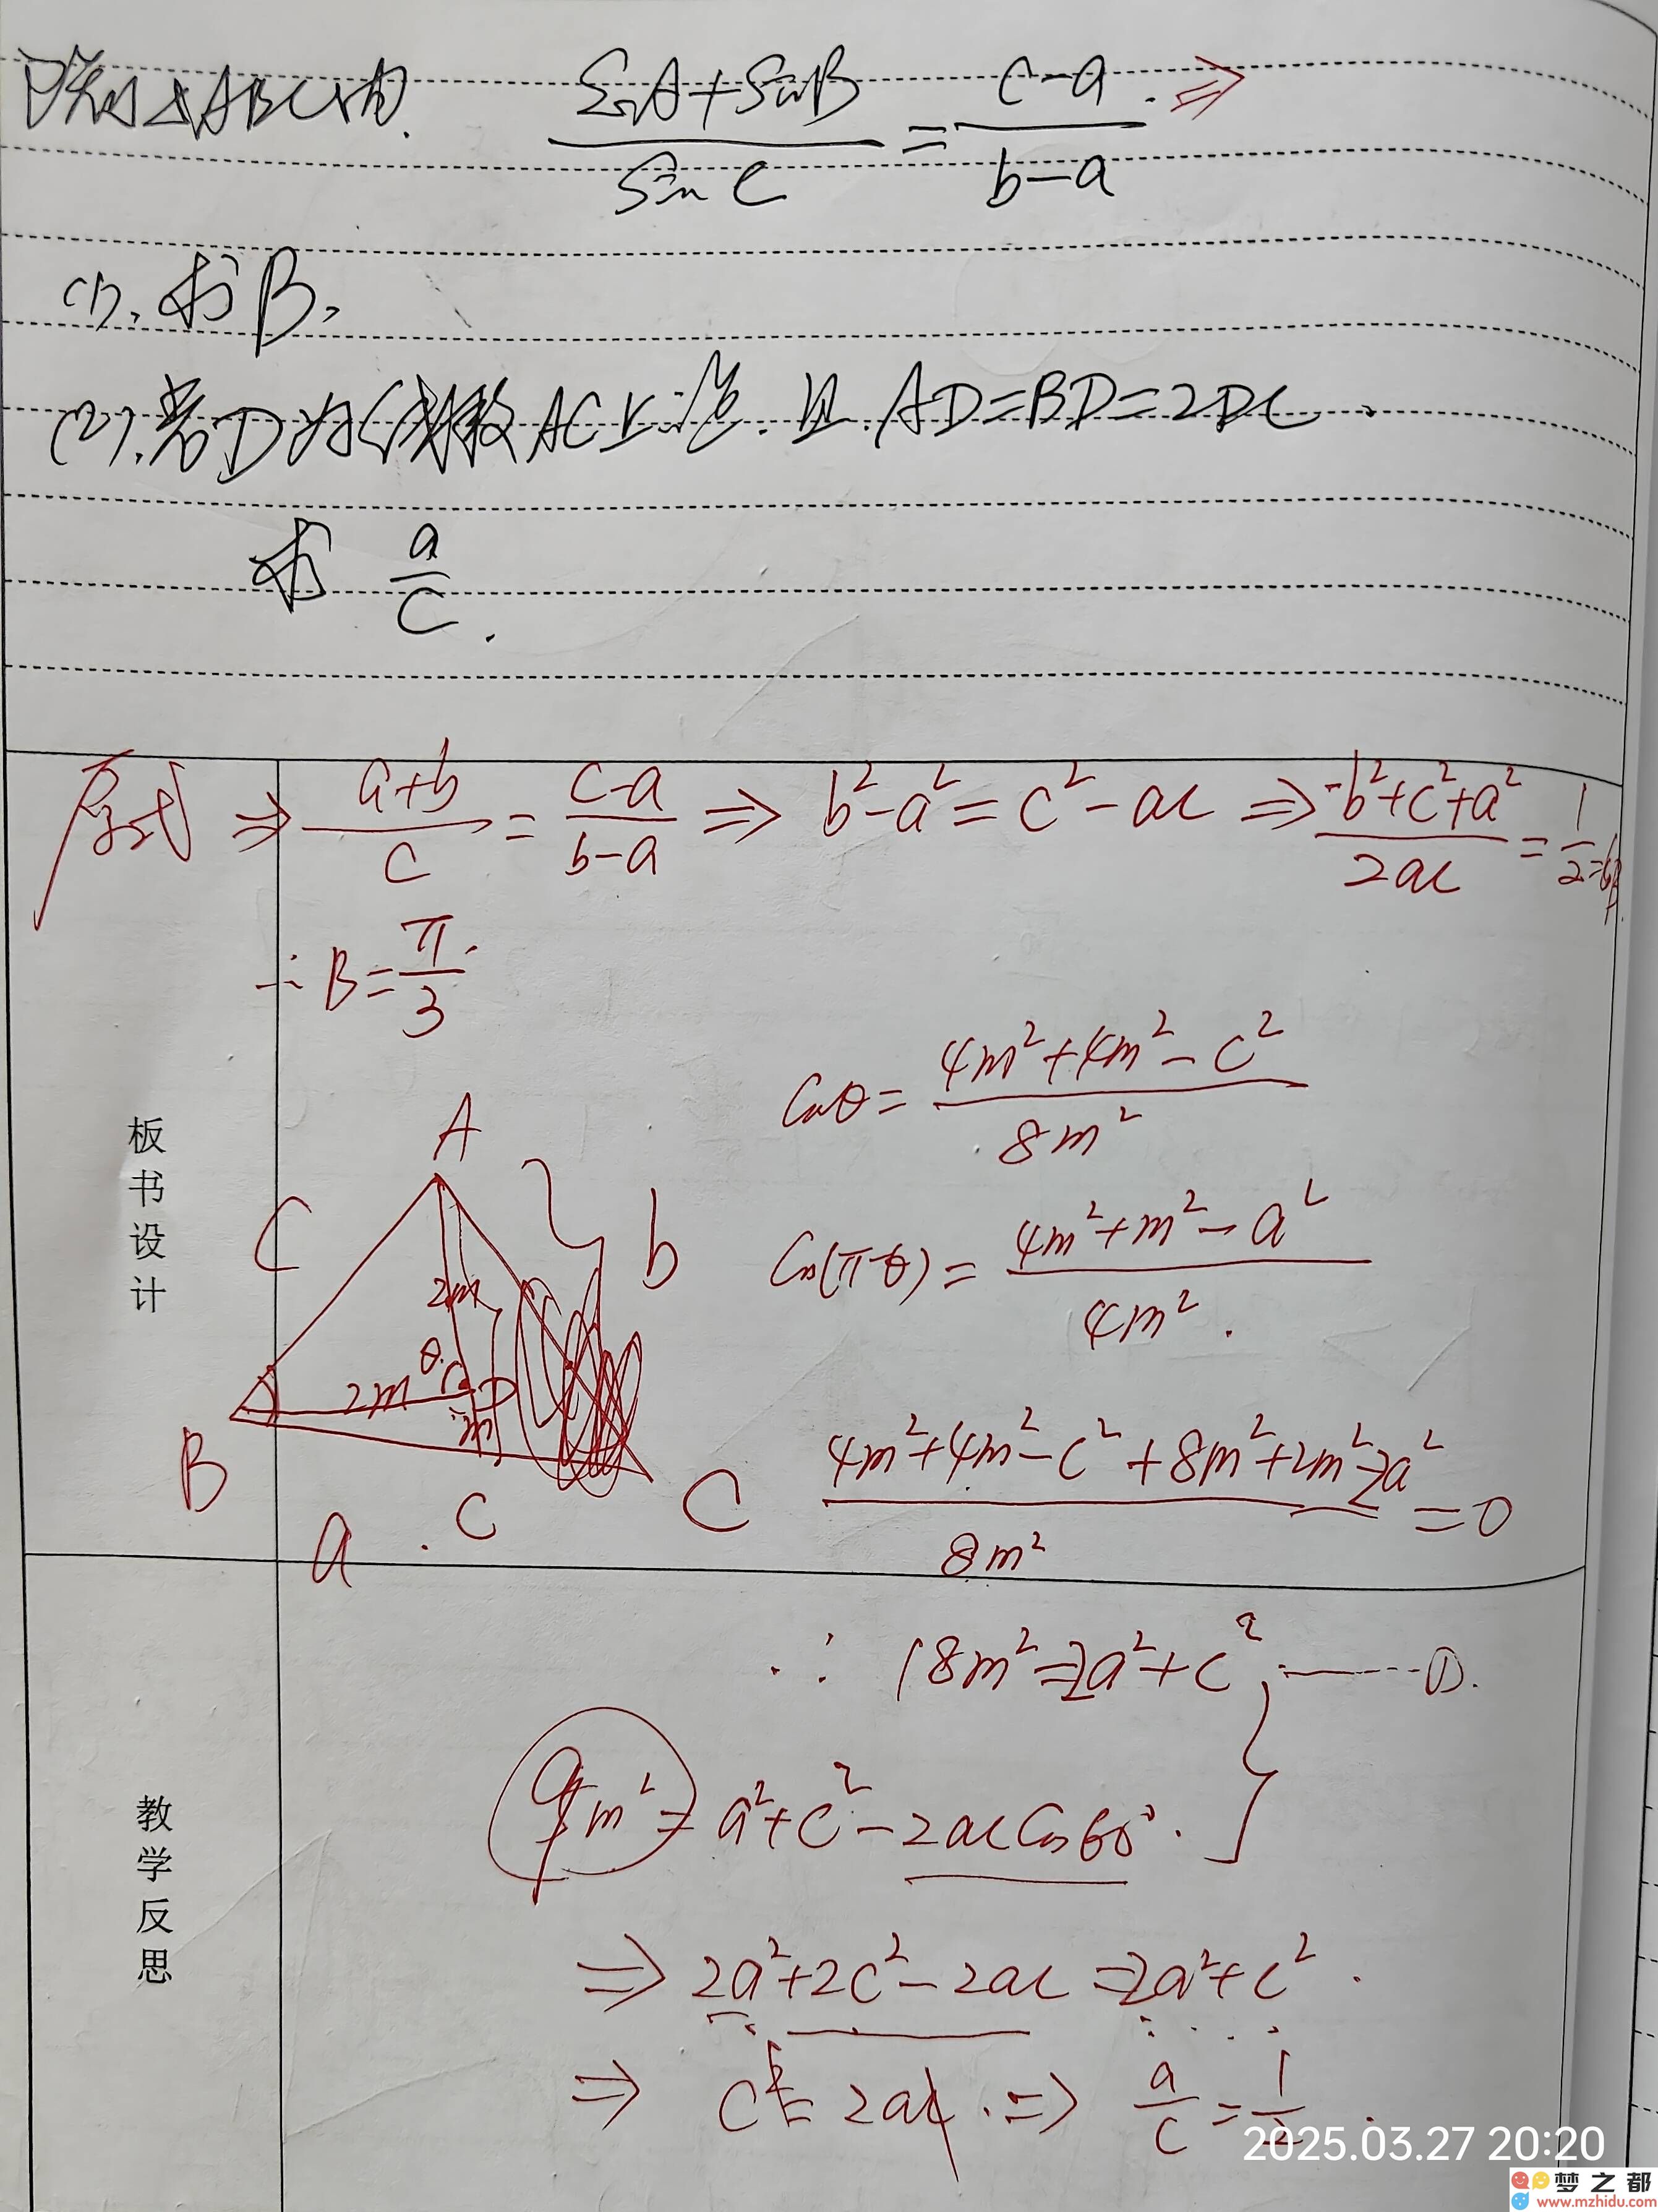 已知△ABC中. (sinA+sinB)/sinC = (c-a)/(b-a). ⇒
(1). 求B,
(2). 若D为线段AC上一点. 且. AD=BD=2DC.
求 a/c.
原式 ⇒ (a+b)/c = (c-a)/(b-a) ⇒ b²-a²=c²-ac ⇒ (-b²+c²+a²)/2ac = 1/2 = cosB
∴ B = π/3.
cosθ = (4m²+4m²-c²)/8m²
cos(π-θ) = (4m²+m²-a²)/4m².
A
C
b
2m
θ
2m
D
m
B
C
a
C
(4m²+4m²-c²+8m²+2m²-2a²)/8m² = 0
∴ 18m²=2a²+c² ------①.
9m² = a²+c²-2accos60°.
⇒ 2a²+2c²-2ac=2a²+c².
⇒ c²=2ac. ⇒ a/c = 1/2.
板书设计
教学反思
2025.03.27 20:20
梦之都
www.mzhidu.com